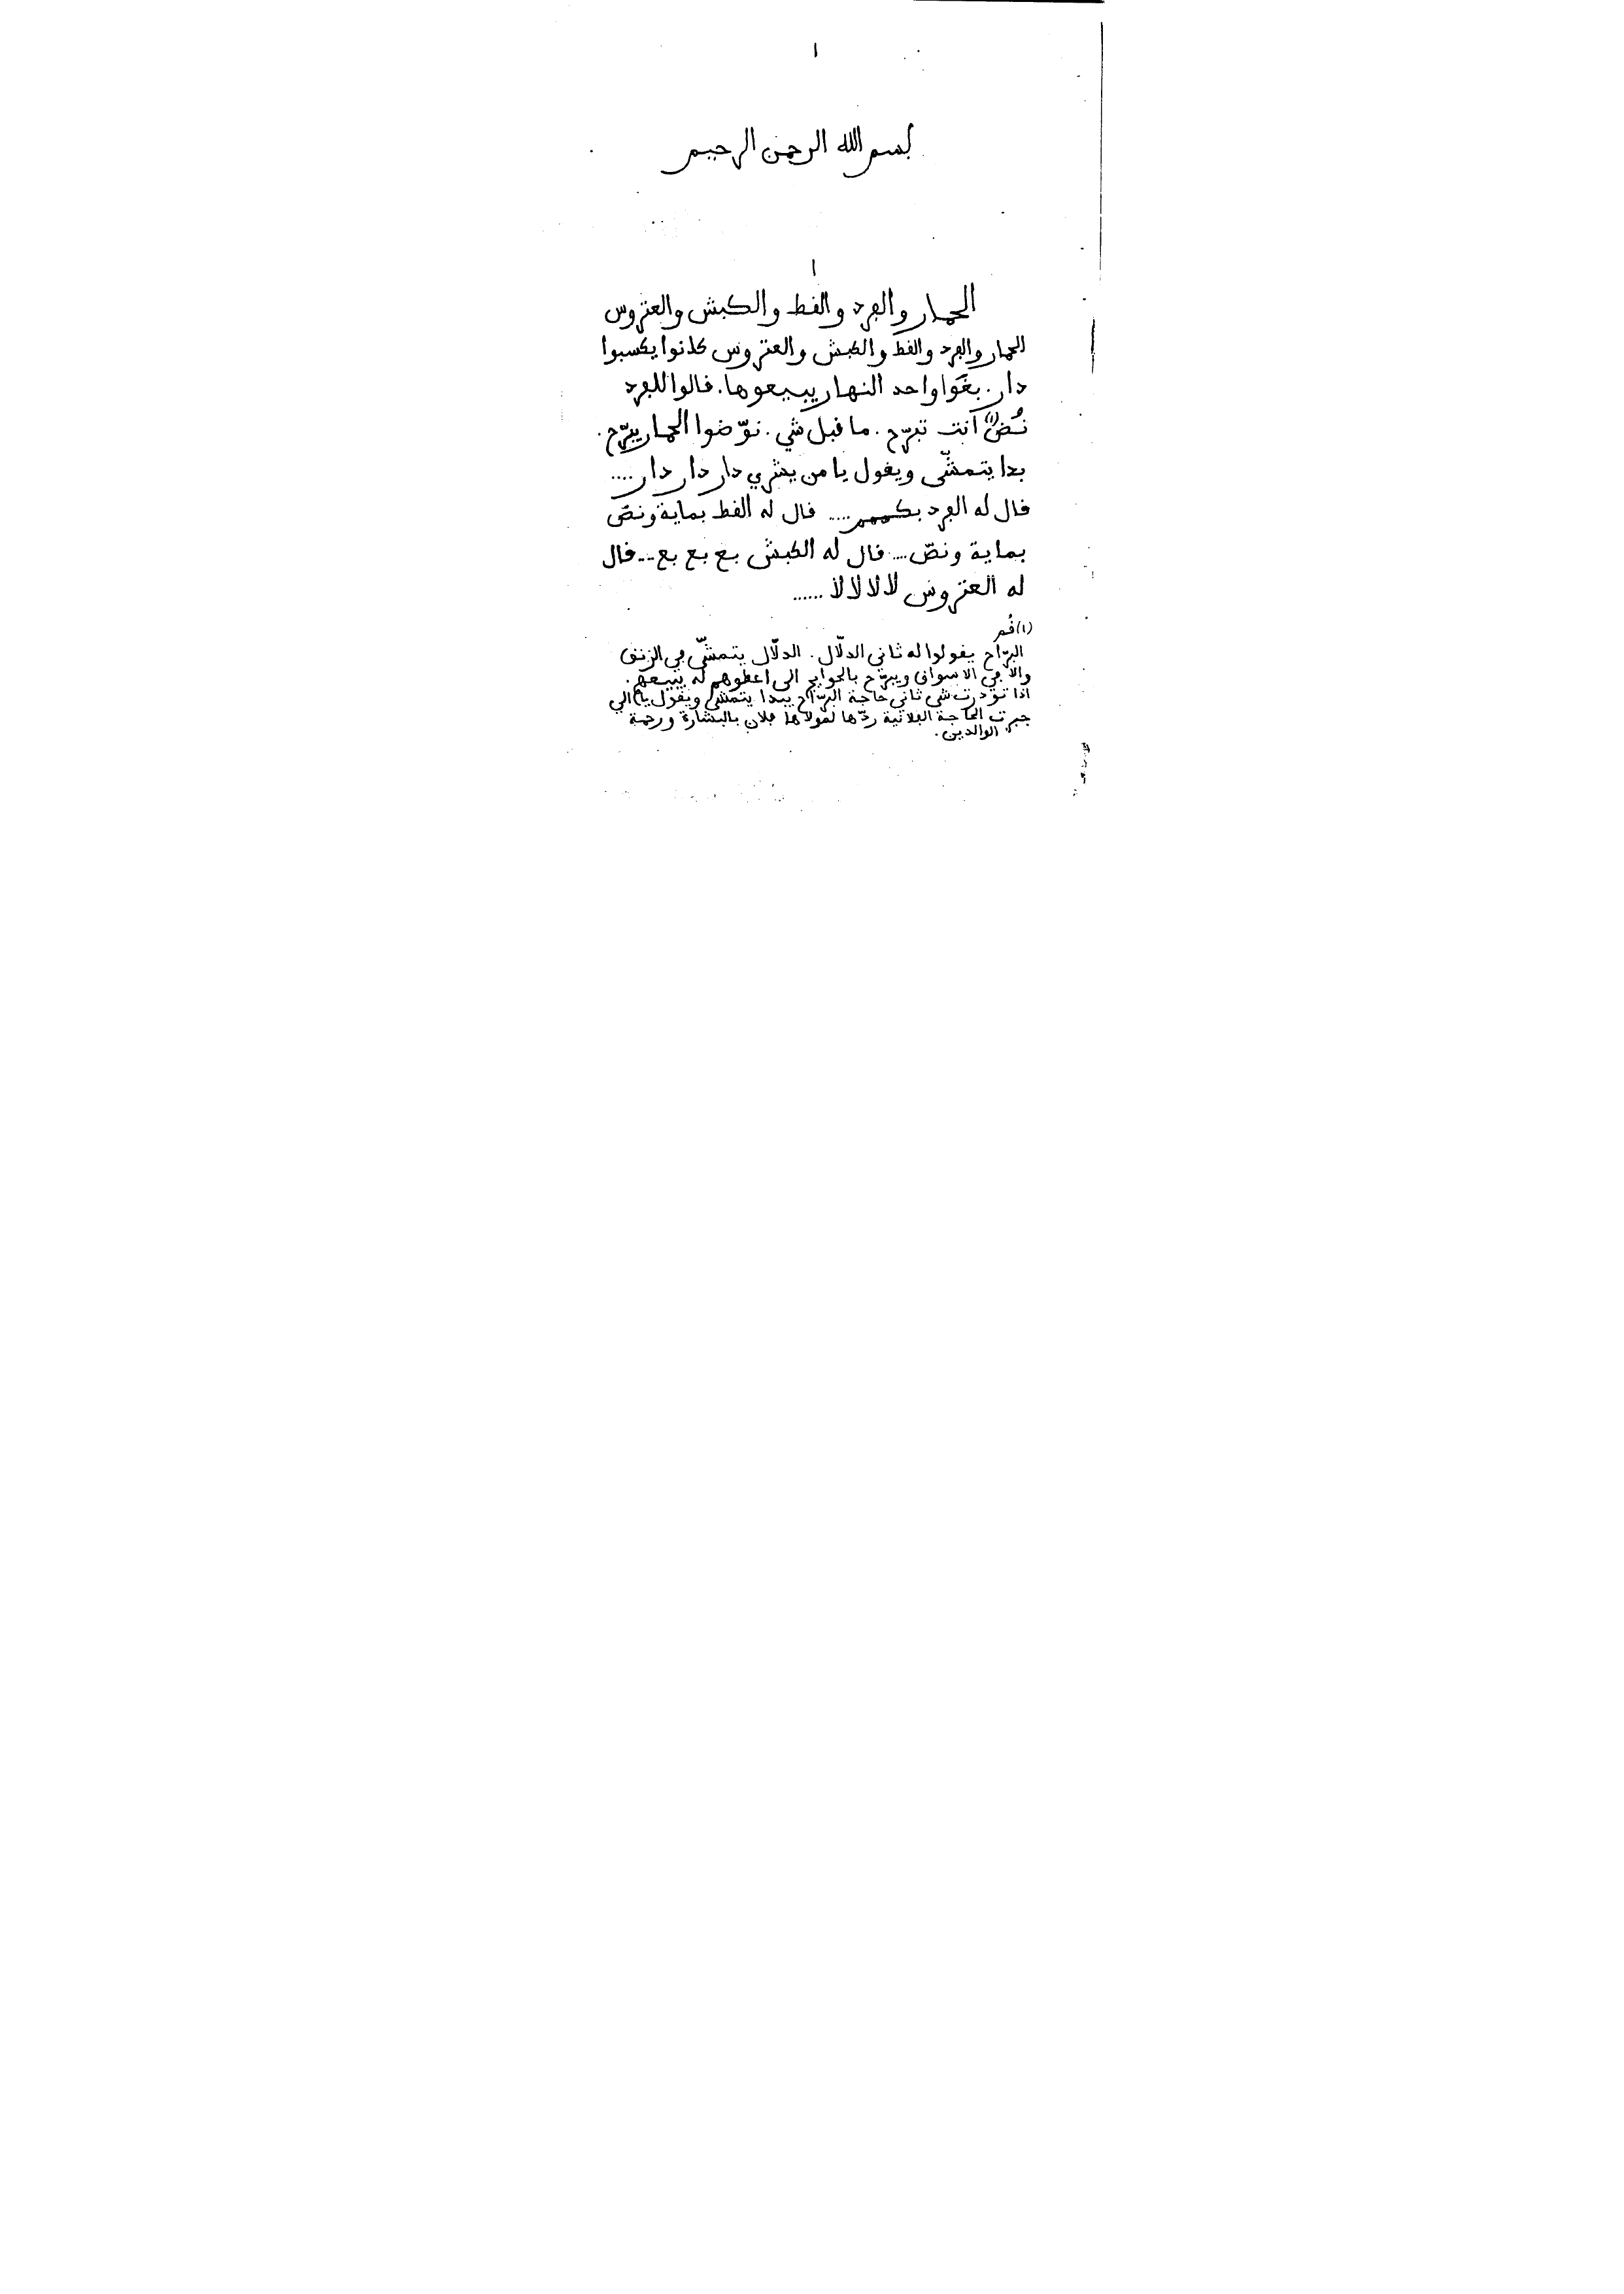 ١
بسم الله الرحمن الرحيم
١
الحمار والفرد والقط والكبش والعتروس
الحمار والفرد والقط والكبش والعتروس كانوا يكسبوا
دار. بغَوا واحد النهار يبيعوها. قالوا للفرد
نُض (١) أنت تبرّح. ما قبل شي. نوّضوا الحمار يبرّح.
بدا يتمشّى ويقول يا من يشري دار دار دار ....
قال له الفرد بكمممم .... قال له القط بماية ونصّ
بماية ونصّ ... قال له الكبش بع بع بع ... قال
له العتروس لا لا لا لا ......
(١) قُم
البرّاح يقولوا له ثاني الدلّال. الدلّال يتمشّى في الزنق
والّا في الاسواق ويبرّح بالحوايج الى اعطوهم له يبيعهم.
اذا تودرت شي ثاني حاجة البرّاح يبدا يتمشّى ويقول يا الي
جبرت الحاجة الفلانية ردّها لمولاها فلان بالبشارة ورحمة
الوالدين.